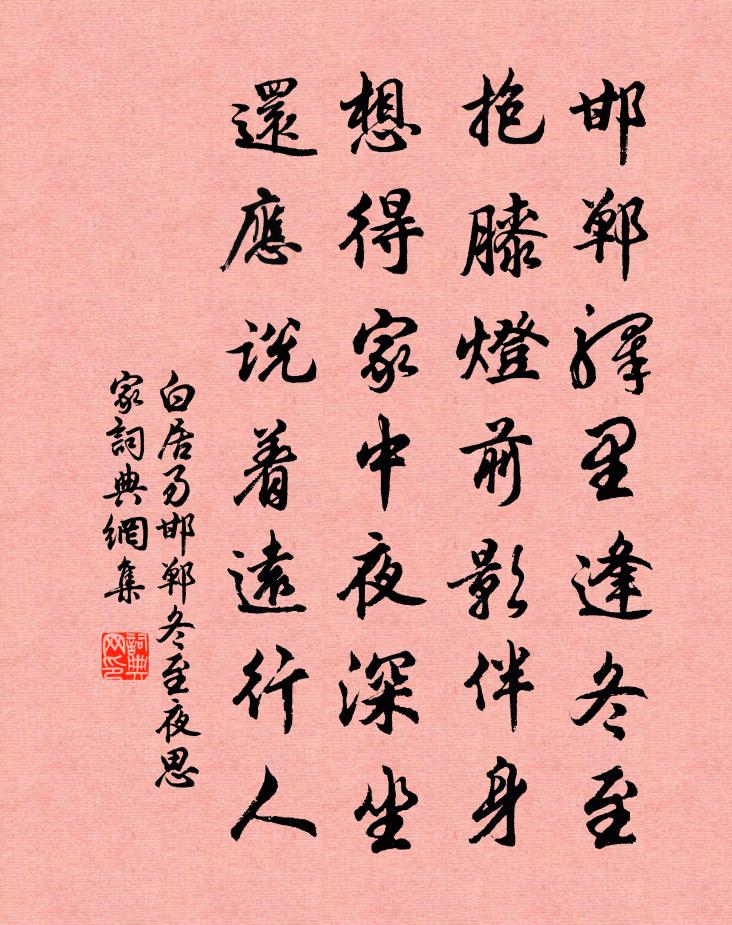 邯鄲驛里逢冬至
抱膝燈前影伴身
想得家中夜深坐
還應説着遠行人
白居易邯鄲冬至夜思
家詞典網集
詞典
网印